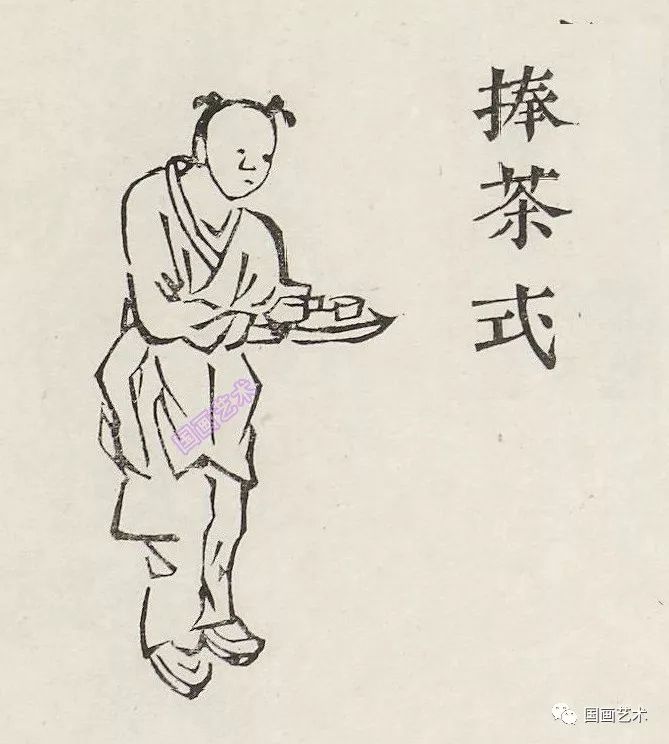 捧茶式
国画艺术
国画艺术